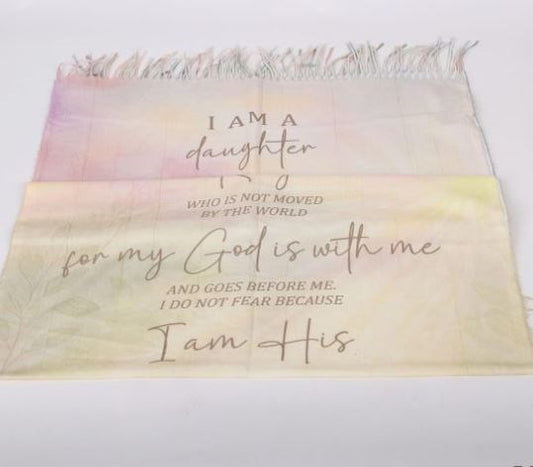 I AM A
daughter
WHO IS NOT MOVED
BY THE WORLD
for my God is with me
AND GOES BEFORE ME.
I DO NOT FEAR BECAUSE
I am His